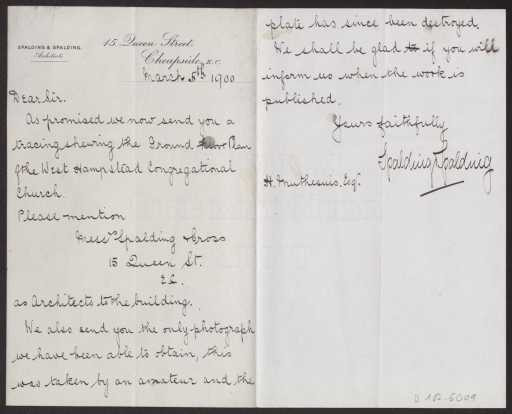 SPALDING & SPALDING.
Architects
15, Queen Street,
Cheapside, E.C.
March 5th 1900
Dear Sir.
As promised we now send you a
tracing shewing the Ground Floor Plan
of the West Hampstead Congregational
Church.
Please mention
Messrs Spalding & Cross
15 Queen St.
E.C.
as Architects to the building.
We also send you the only photograph
we have been able to obtain, this
was taken by an amateur and the
plate has since been destroyed.
We shall be glad if you will
inform us when the work is
published.
Yours faithfully
Spalding & Spalding
H. Muthesius. Esqr.